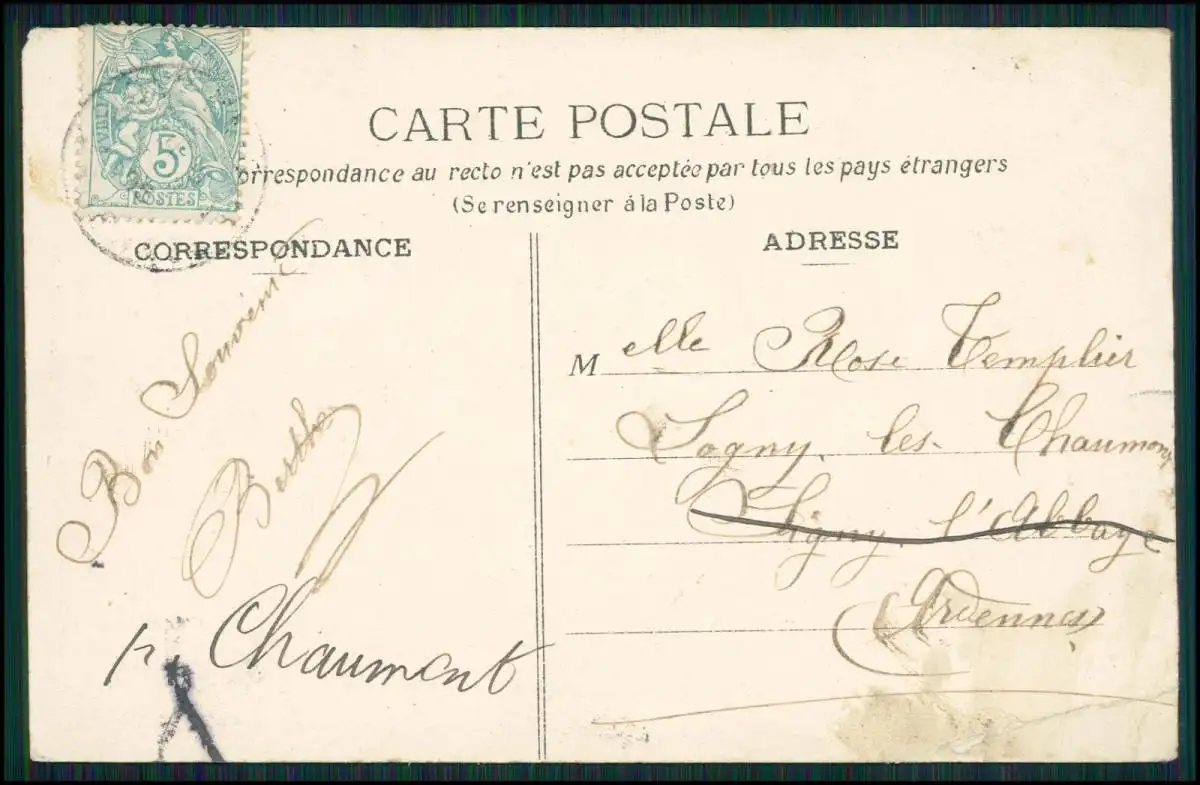 RÉPUBLIQUE FRANÇAISE
5c
POSTES
CARTE POSTALE
orrespondance au recto n'est pas acceptée par tous les pays étrangers
(Se renseigner à la Poste)
CORRESPONDANCE
Bon Souvenir
Berthe
Chaumont
ADRESSE
Melle Rose Templier
Logny, les Chaumont
Signy, l'Abbaye
Ardennes